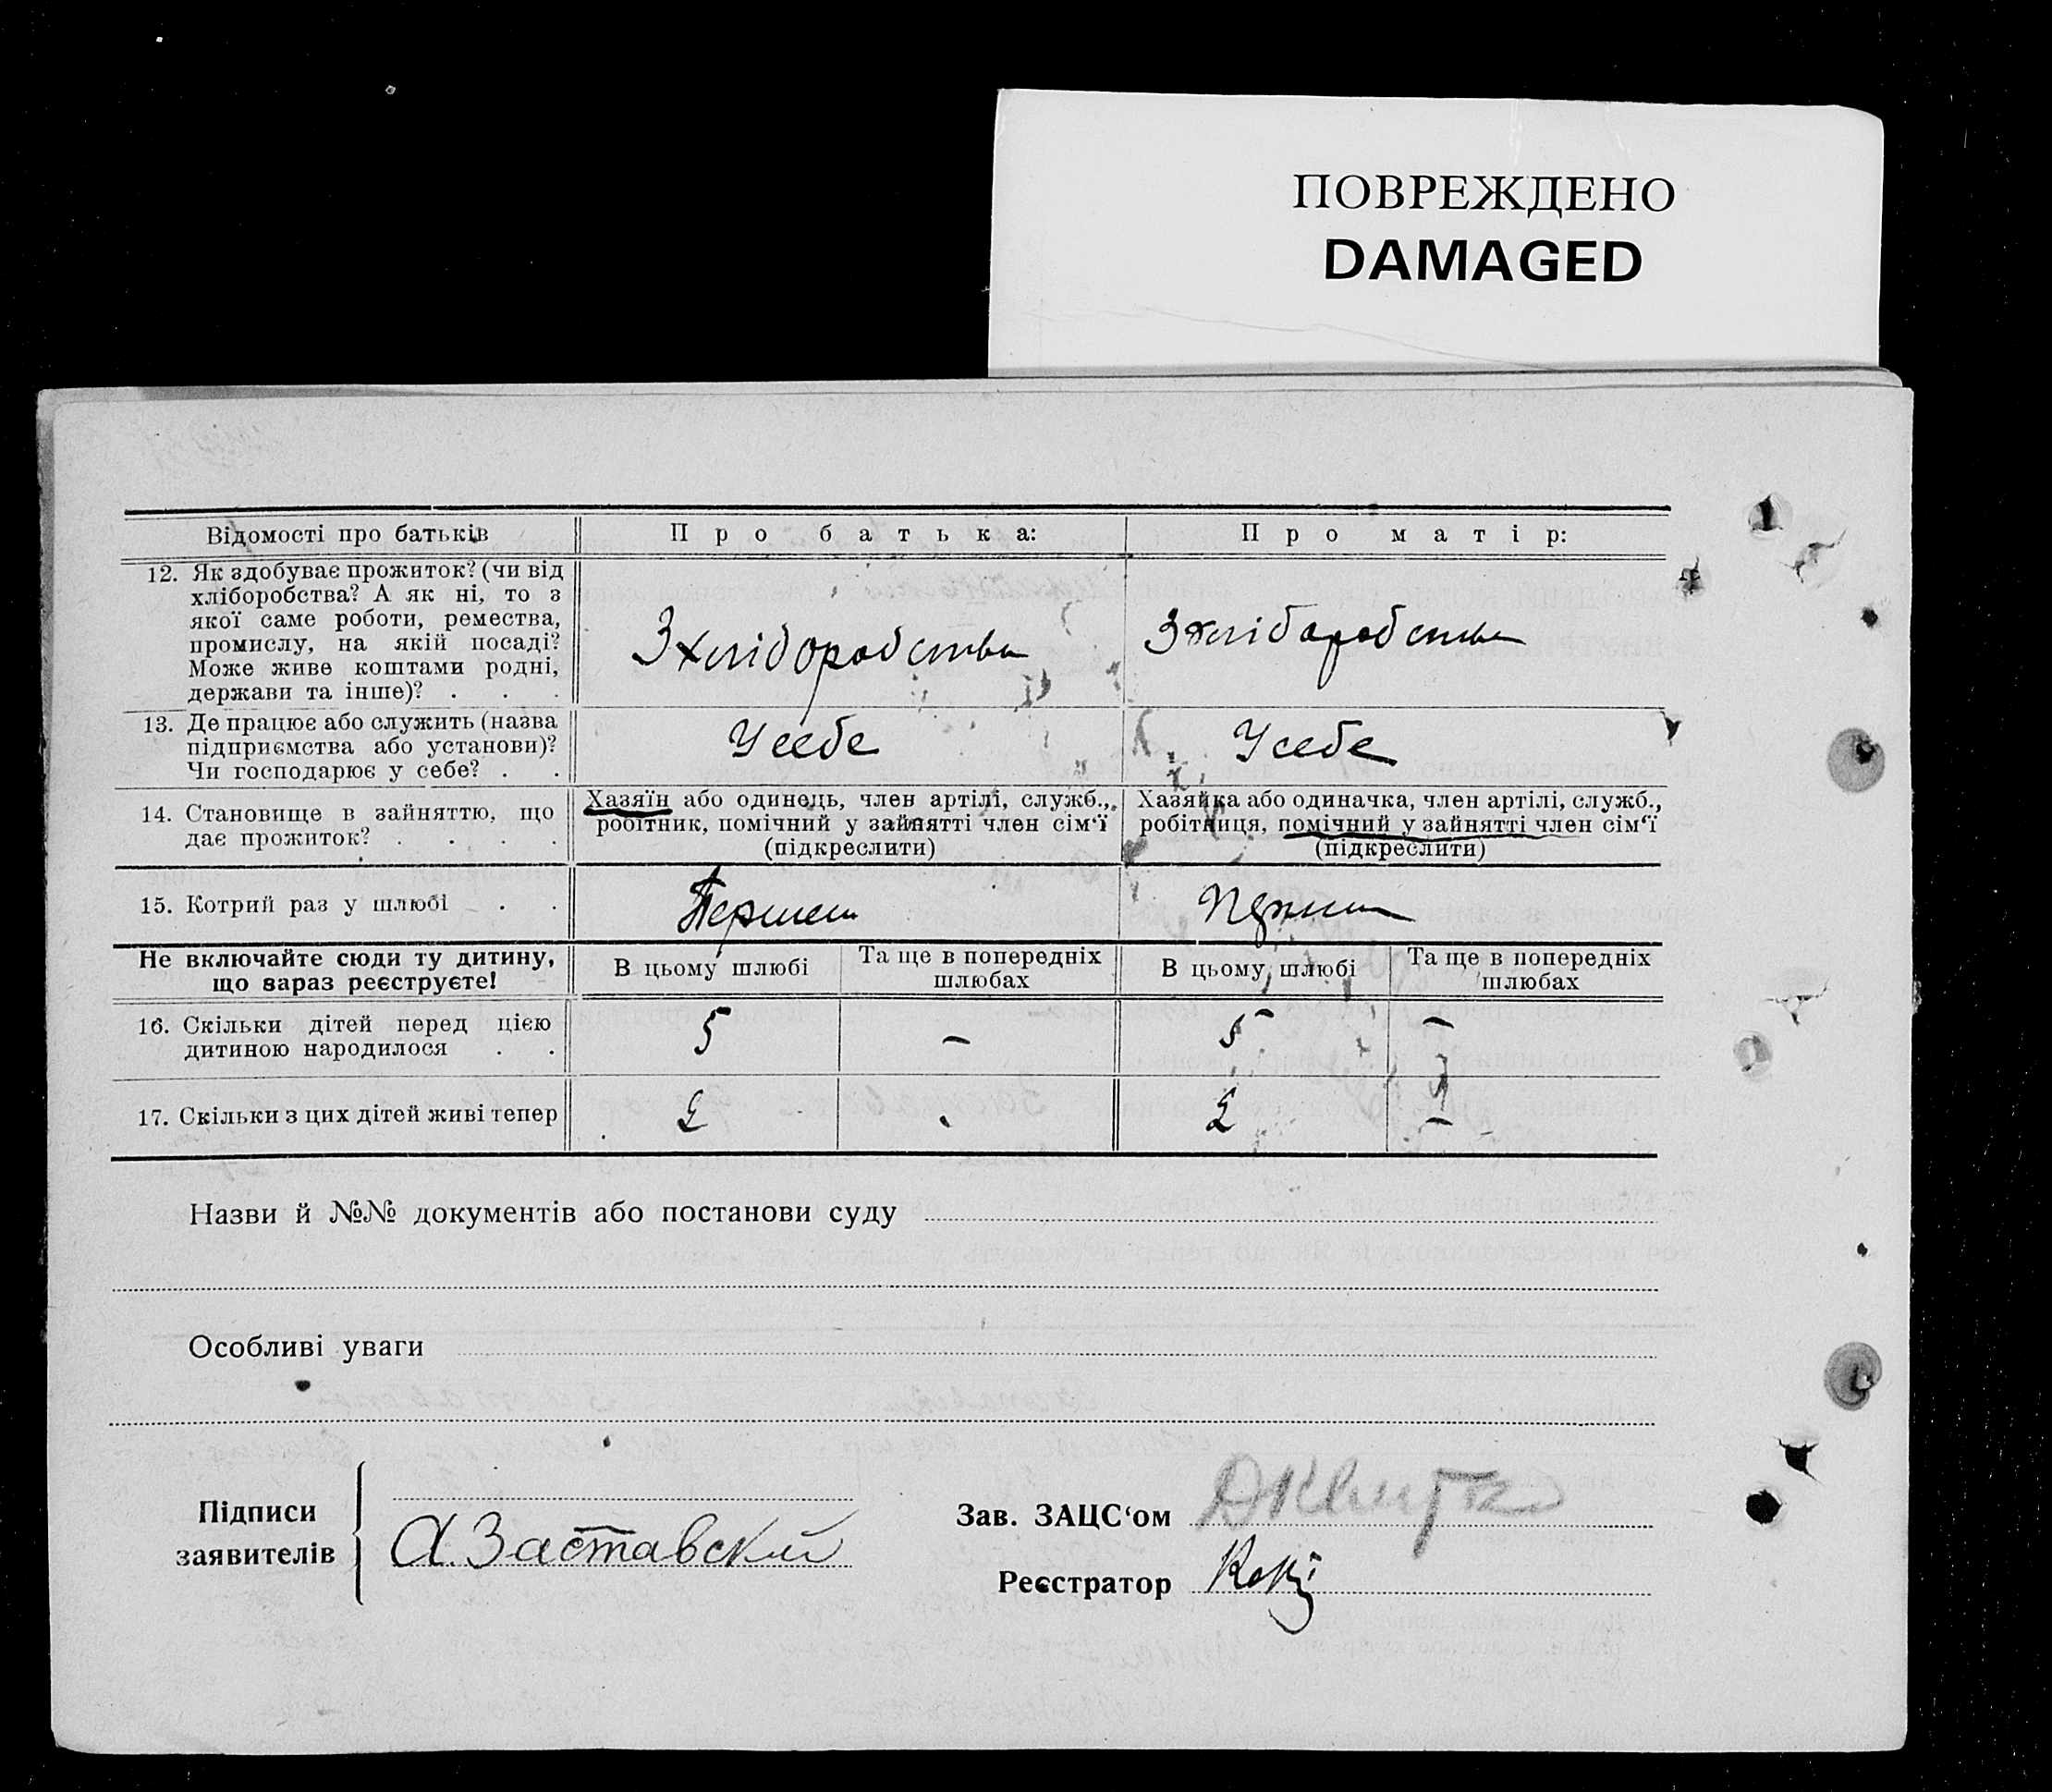 ПОВРЕЖДЕНО
DAMAGED
Відомості про батьків
Про батька:
Про матір:
12. Як здобуває прожиток? (чи від
хліборобства? А як ні, то з
якої саме роботи, ремества,
промислу, на якій посаді?
Може живе коштами родні,
держави та інше)? . . .
З хліборобства
З хліборобства
13. Де працює або служить (назва
підприємства або установи)?
Чи господарює у себе? . .
У себе
У себе
14. Становище в зайняттю, що
дає прожиток? . . . .
Хазяїн або одинець, член артілі, служб.,
робітник, помічний у зайнятті член сім'ї
(підкреслити)
Хазяйка або одиначка, член артілі, служб.,
робітниця, помічний у зайнятті член сім'ї
(підкреслити)
15. Котрий раз у шлюбі . .
Першем
Не включайте сюди ту дитину,
що зараз реєструєте!
В цьому шлюбі
Та ще в попередніх
шлюбах
В цьому шлюбі
Та ще в попередніх
шлюбах
16. Скільки дітей перед цією
дитиною народилося . .
5
–
5
–
17. Скільки з цих дітей живі тепер
2
2
–
Назви й №№ документів або постанови суду
Особливі уваги
Підписи
заявителів
А. Заставский
Зав. ЗАЦС'ом
Реєстратор